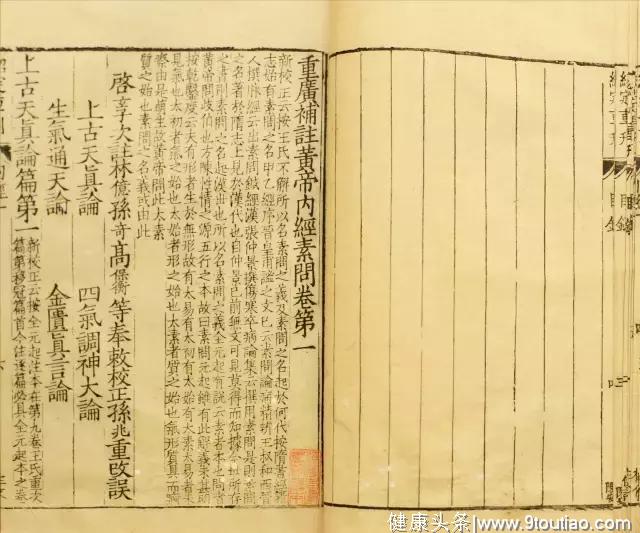 紹定重刊
目錄
三
重廣補註黃帝內經素問卷第一
新校正云按王氏不解所以名素問之義及素問之名起於何代按隋書經籍
志始有素問之名甲乙經序晉皇甫謐之文已云素問論病精辨王叔和西晉
人撰脉經云出素問鍼經漢張仲景撰傷寒卒病論集云撰用素問是則素問
之名著於隋志上見於漢代也自仲景已前無文可見莫得而知據今世所存
之書則素問之名起漢世也所以名素問之義全元起有說云素者本也問者
黃帝問歧伯也方陳性情之源五行之本故曰素問元起雖有此解義未甚明
按乾鑿度云夫有形者生於無形故有太易有太初有太始有太素太易者未
見氣也太初者氣之始也太始者形之始也太素者質之始也氣形質具而痾
瘵由是萌生故黃帝問此太素
質之始也素問之名義或由此
啓玄子次註林億孫奇高保衡等奉敕校正孫兆重改誤
上古天眞論 四氣調神大論
生氣通天論 金匱眞言論
上古天眞論篇第一
新校正云按全元起注本在第九卷王氏重次
篇第移冠篇首今注逐篇必具全元起本之卷
健康头条|www.9toutiao.com